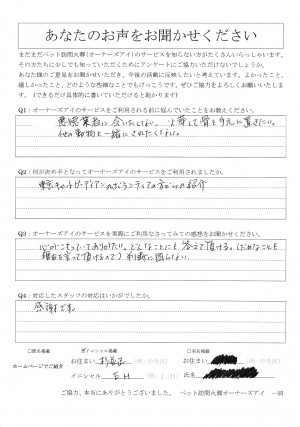 あなたのお声をお聞かせください
まだまだペット訪問火葬(オーナーズアイ)のサービスを知らない方がたくさんいらっしゃいます。
その方たちに少しでも知っていただくためにアンケートにご協力いただけないでしょうか。
あなた様のご意見をお聞かせいただき、今後の活動に反映したいと考えています。よかったこと、
嬉しかったこと、どのような些細なことでもけっこうです。ぜひご協力をよろしくお願いいたしま
す。(できるだけ具体的に書いていただけると助かります)
Q1：オーナーズアイのサービスをご利用される前に悩んでいたことをお教えください。
悪徳業者に会いたくない。
他の動物と一緒にされたくない。
Q2：何が決め手となってオーナーズアイのサービスをご利用されましたか。
東京キャットガーディアンへボランティアの方からの紹介
Q3：オーナーズアイのサービスを実際にご利用なさってみての感想をお聞かせください。
心がこもっていてありがたい。どんなことにも答えて頂ける。(だめなことも
理由を言って頂けるので)判断に困らない。
Q4：対応したスタッフの対応はいかがでしたか。
感謝です。
□匿名掲載 ☑イニシャル掲載 □実名掲載
ホームページでご紹介
お住まい 杉並区 (例：中央区) お住まい (例：中央区)
イニシャル E H (例：T．H) 氏名
ご協力、本当にありがとうございました。 ペット訪問火葬オーナーズアイ 一同